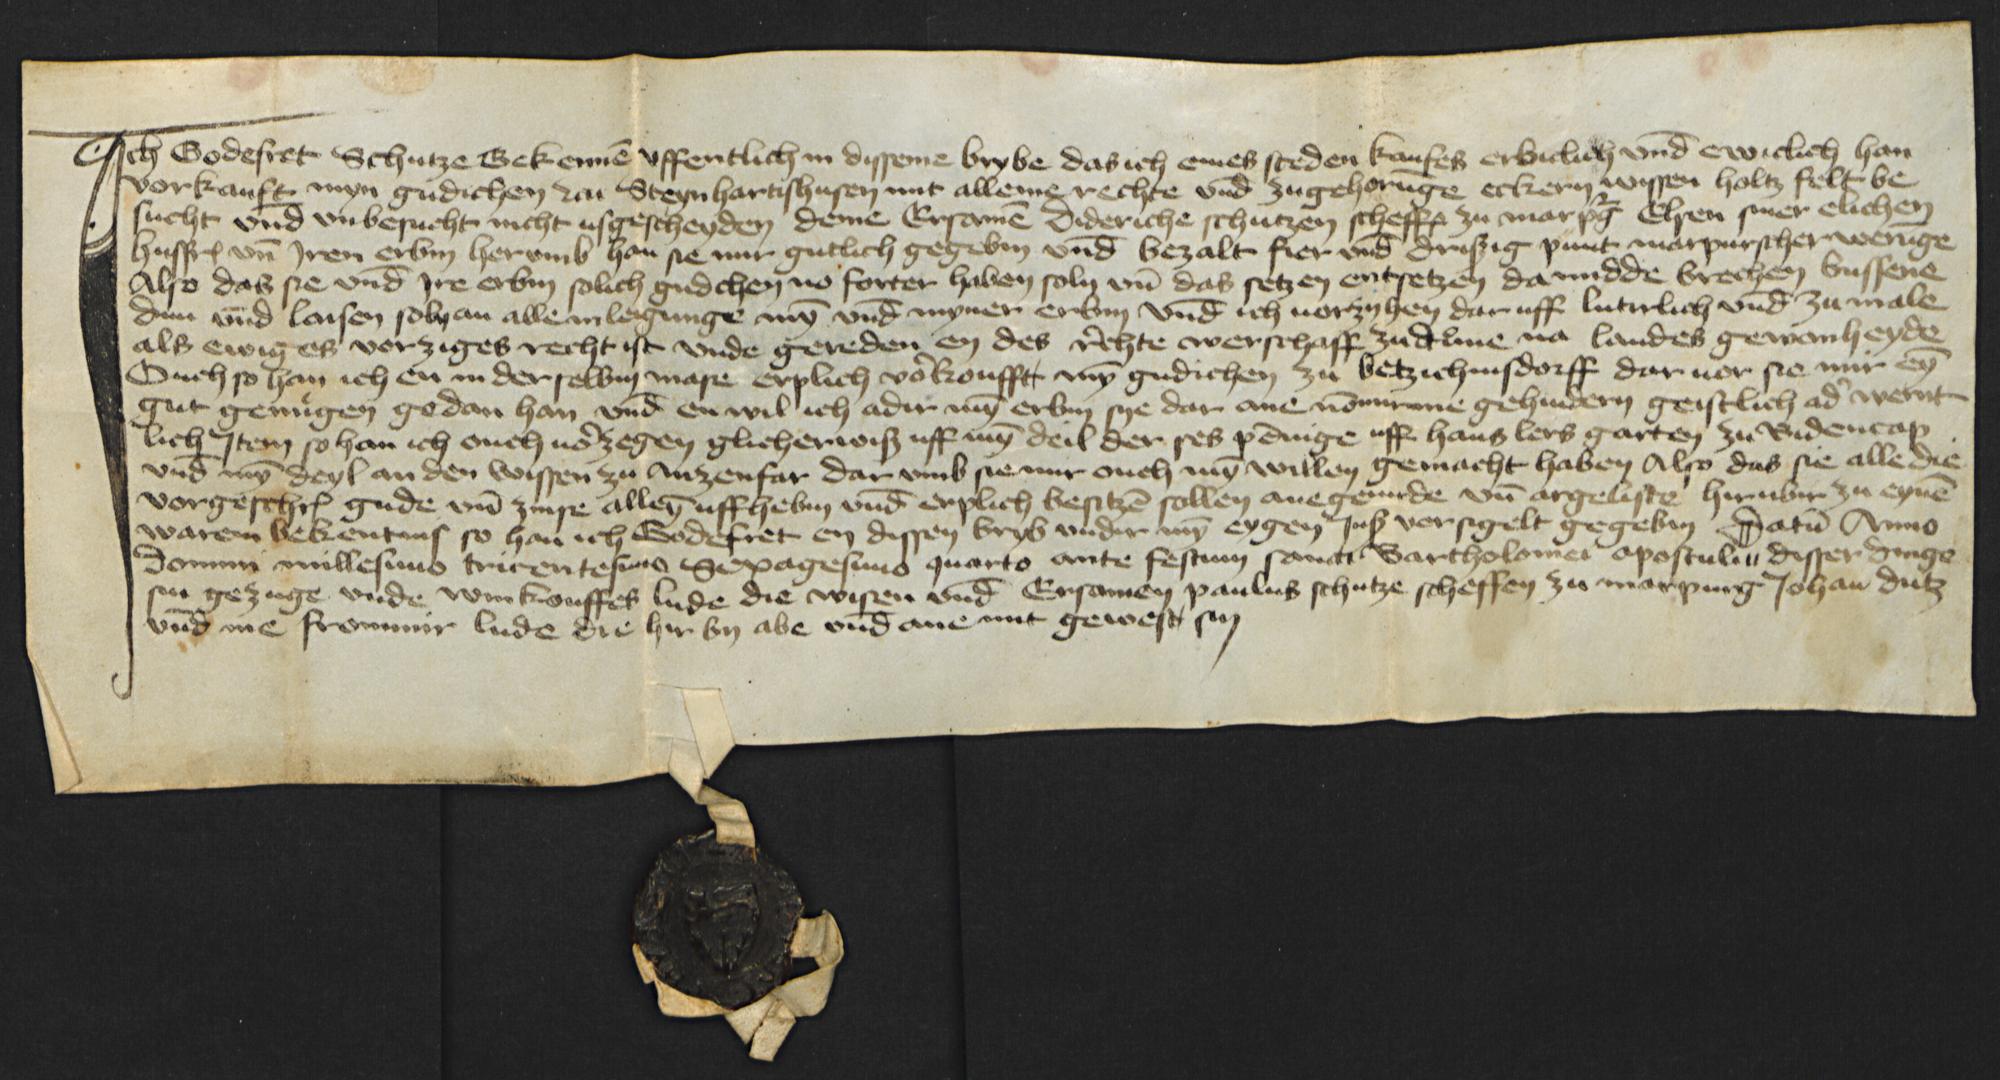 Ich Godefret Schutze Bekennē uffentlich in disseme brybe das ich eines steden kaufes erbiclich vnd̄ ewiclich han
vorkauft myn gudichen zu Steynhartishusen mit alleme rechte vnd̄ zugehorūge eckern wissen holtz felt be
sucht vnd̄ vnbesucht nicht usgescheyden deme Ersamē Dideriche schutzen scheffē zu marpḡ Elsen siner elichen
hussfr̄ vn̄ Iren erbin her vmb han sie mir gutlich gegebin vnd̄ bezalt fier vnd̄ drißig punt marpurscher werūge
Also das sie vnd̄ Ire erbin solich gudchen no forter haben soln vn̄ das setzen entsetzen da midde brechen bussene
dun vnd̄ laisen soln an alle inleigunge myn̄ vnd̄ myner erbin vnd̄ ich vorzyhen dar uff luttirlich vnd̄ zu male
als ewiges vorziges recht ist vnde gereden en des rechte werschaff zu dune na landes gewonheyde
Ouch so han ich en in der selbin mase erplich v'koufft myn̄ gudichen zu betzichinsdorff dar vor sie mir eyn̄
gut genugen gedan han vnd̄ en wil ich adir myn̄ erbin sye dar ane nōmirme gehindern geistlich ad' wernt
lich Item so han ich ouch v'zegen glicherwiß uff myn̄ deil der ses pēnige uff hans lers garten zu Bidencap
vnd̄ myn̄ deyl an den wissen zu Anzenfar dar vmb sie mir ouch myn̄ willen gemacht haben Also das sie alle die
vorgeschr̄ gude vn̄ zinse alleyn̄ uffhebin vnd̄ erplich besitzē sollen ane geuirde vn̄ argeliste hir ubir zu eynē
waren bekentnis so han ich Godefret en dissen bryb vndir myn̄ eygen Inß versigelt gegebin Datū Anno
Domini millesimo tricentesimo Sexagesimo quarto ante festum sancti Bartholomei apostuli disser dinge
sin gezuge vnde winkouffes lude die wisen vnd̄ Ersamen paulus schutze scheffen zu marpurg Johan dutz
vnd̄ me frommir lude die hir by abe vnd̄ ane mit gewest sin